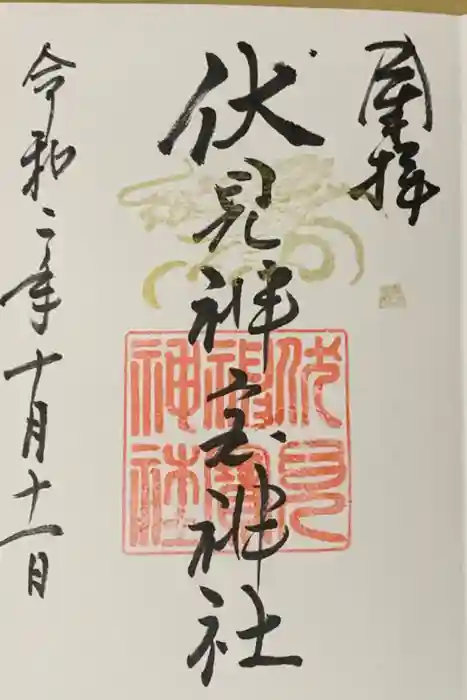 奉拝
伏見神宝神社
伏見神寳神社
令和二年十月十一日